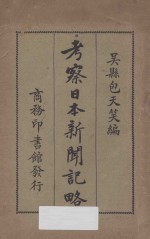 吳縣包天笑編
考察日本新聞記略
商務印書館發行